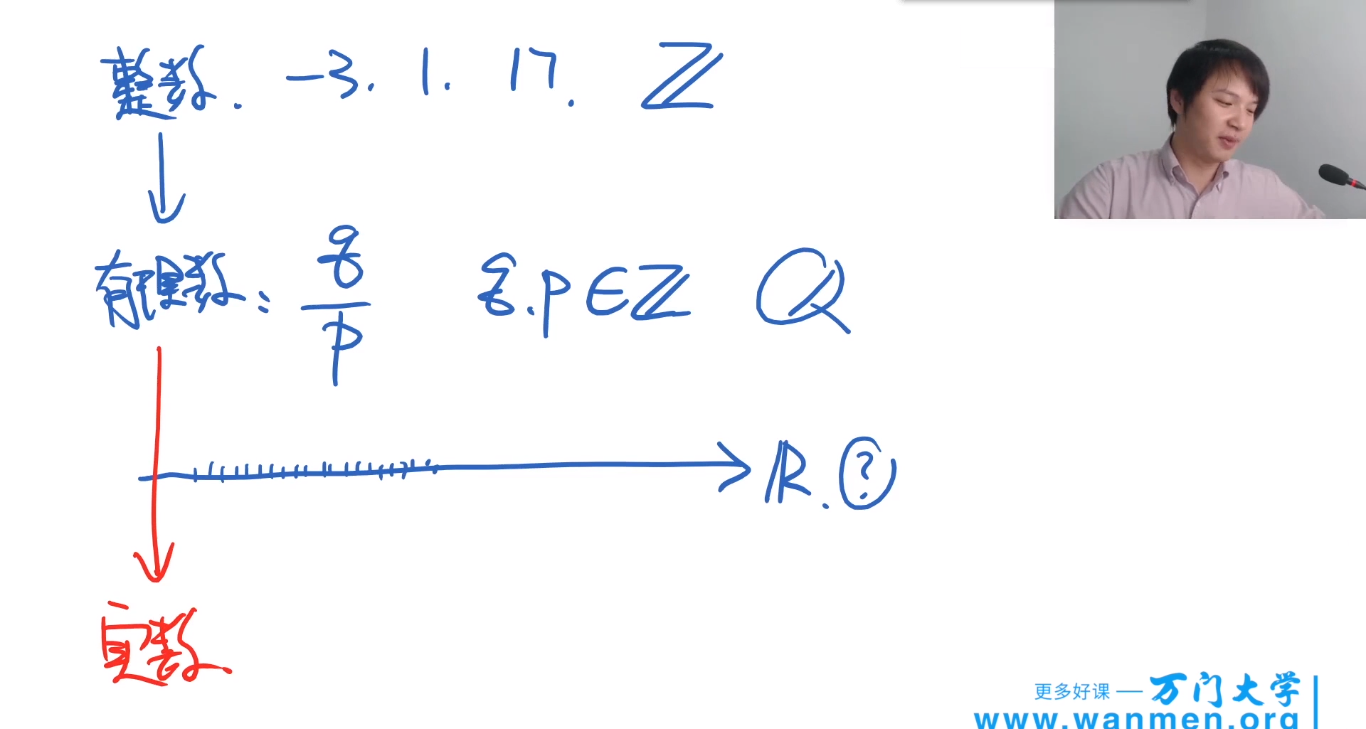 整数. -3. 1. 17. ℤ
有理数: q/p q.p∈ℤ ℚ
ℝ. ?
实数.
更多好课 — 万门大学
www.wanmen.org